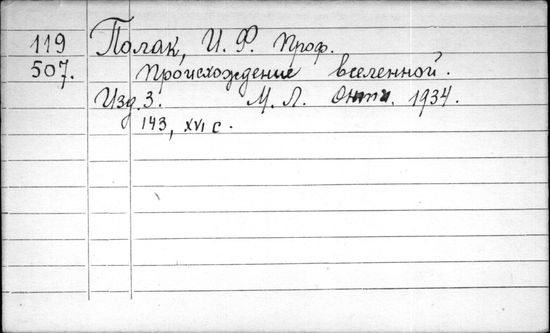 119 Полак, И. Ф. Проф.
507. Происхождение вселенной.
Изд. 3. М. Л. Онти. 1934.
143, XVI с.